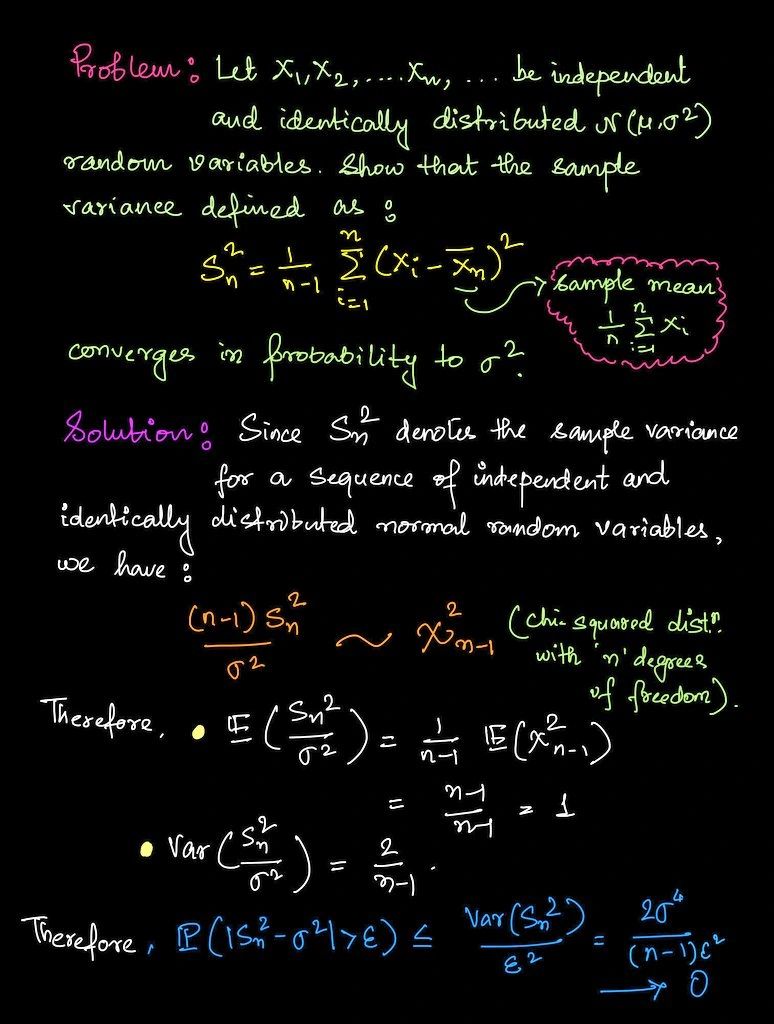 Problem : Let X₁, X₂, .... Xₙ, ... be independent
and identically distributed N(μ, σ²)
random variables. Show that the sample
variance defined as :
Sₙ² = 1/(n-1) Σᵢ₌₁ⁿ (Xᵢ - X̄ₙ)²
sample mean
1/n Σᵢ₌₁ⁿ Xᵢ
converges in probability to σ².
Solution : Since Sₙ² denotes the sample variance
for a sequence of independent and
identically distributed normal random variables,
we have :
(n-1) Sₙ² / σ² ~ χ²ₙ₋₁ (chi-squared distⁿ.
with 'n' degrees
of freedom).
Therefore, • 𝔼(Sₙ²/σ²) = 1/(n-1) 𝔼(χ²ₙ₋₁)
= (n-1)/(n-1) = 1
• Var(Sₙ²/σ²) = 2/(n-1) .
Therefore, ℙ(|Sₙ²-σ²|>ε) ≤ Var(Sₙ²)/ε² = 2σ⁴/((n-1)ε²)
⟶ 0